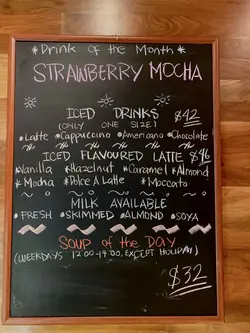 *Drink of the Month*
STRAWBERRY MOCHA
ICED DRINKS $42
(ONLY ONE SIZE)
*Latte *Cappuccino *Americano *Chocolate
ICED FLAVOURED LATTE $46
*Vanilla *Hazelnut *Caramel *Almond
*Mocha *Dolce A Latte *Moccato
MILK AVAILABLE
*FRESH *SKIMMED *ALMOND *SOYA
SOUP of the DAY
(WEEKDAYS 12:00-14:00, EXCEPT HOLIDAY)
$32